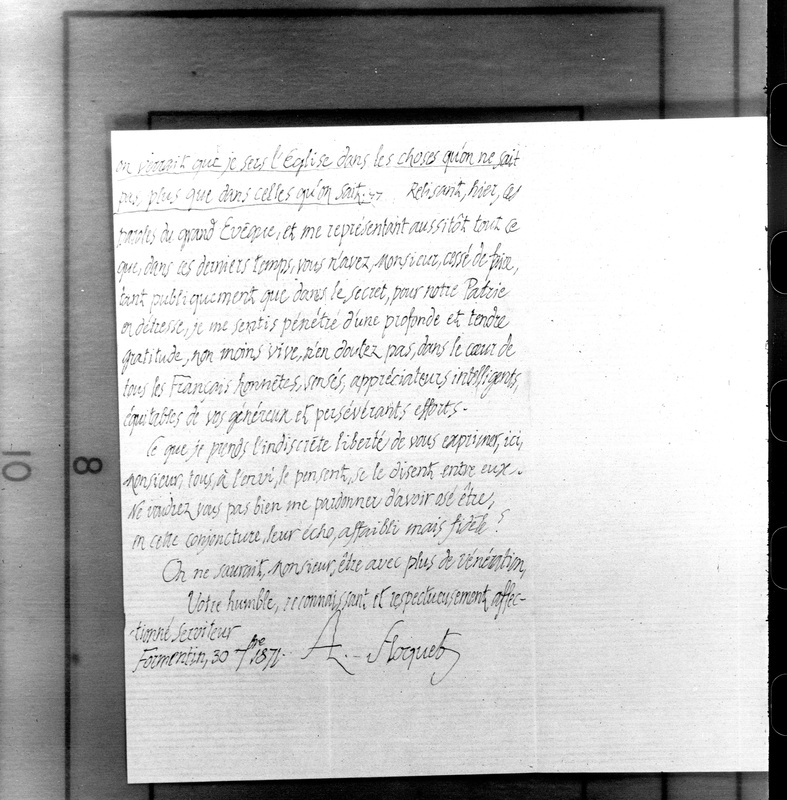 on verrait que je sers l'Eglise dans les choses qu'on ne sait
pas, plus que dans celles qu'on sait. Relisant, hier, ces
paroles du grand Evêque, et me représentant aussitôt tout ce
que, dans ces derniers temps, vous n'avez, Monsieur, cessé de faire,
tant publiquement que dans le secret, pour notre Patrie
en détresse, je me sentis pénétré d'une profonde et tendre
gratitude, non moins vive, n'en doutez pas, dans le cœur de
tous les Français honnêtes, sensés, appréciateurs intelligents,
équitables de vos généreux et persévérants efforts.
Ce que je prends l'indiscrète liberté de vous exprimer, ici,
Monsieur, tous, à l'envi, le pensent, se le disent entre eux.
Ne voudrez vous pas bien me pardonner d'avoir osé être,
en cette conjoncture, leur écho, affaibli mais fidèle ?
On ne saurait, Monsieur, être avec plus de vénération,
Votre humble, reconnaissant et respectueusement affec-
tionné Serviteur
Formentin, 30 7bre 1871. A. Floquet
10
8